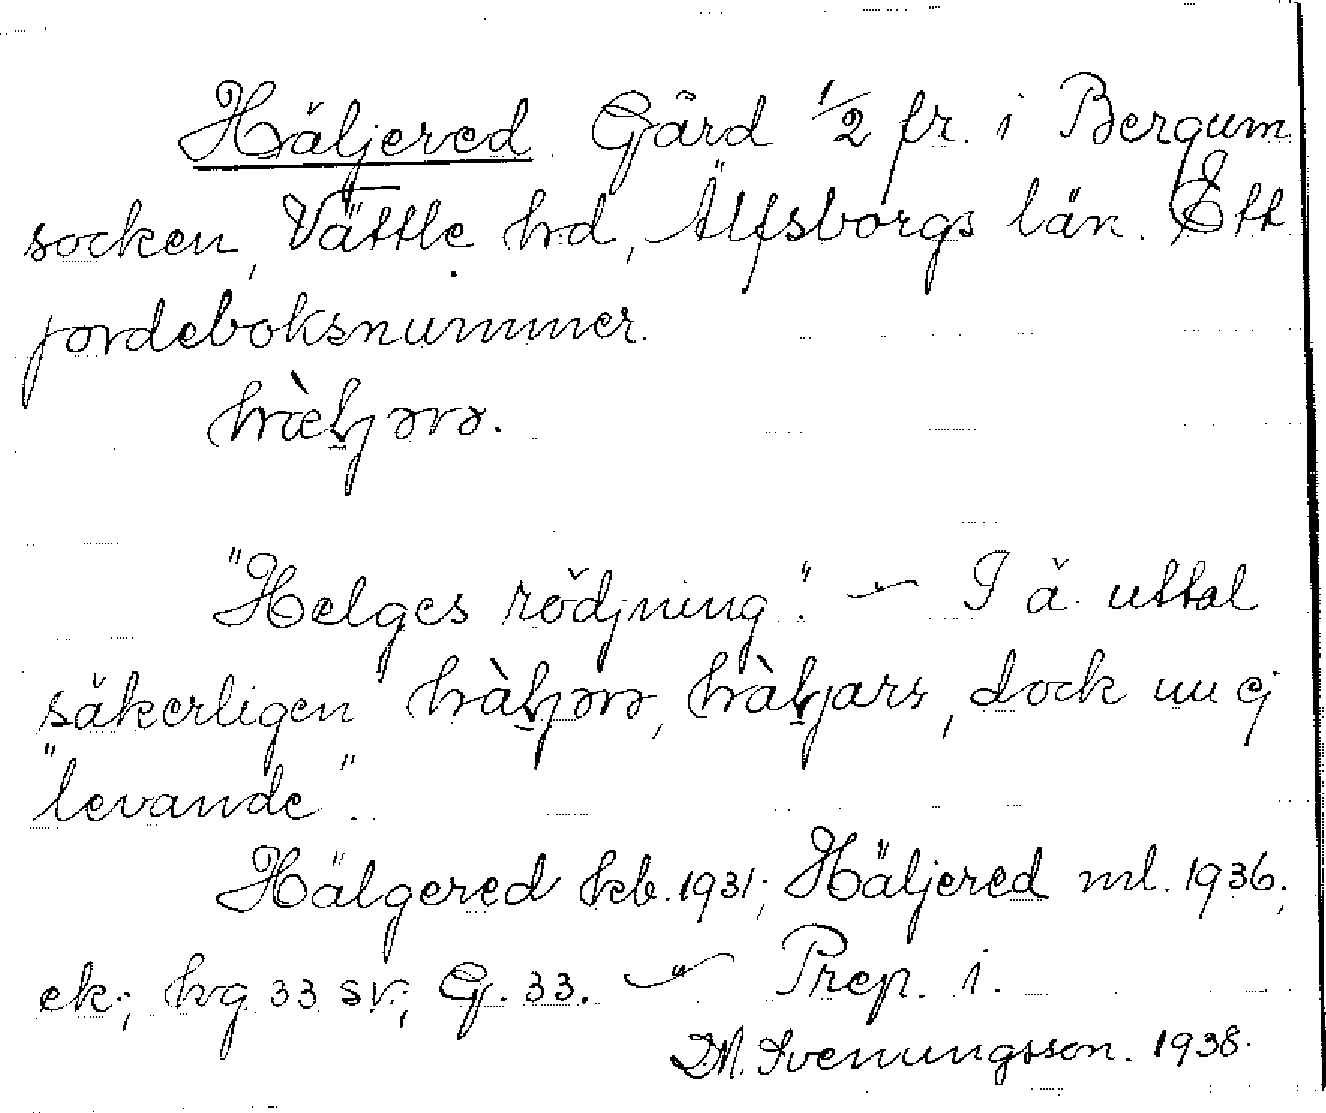 Häljered Gård 1/2 fr. i Bergum
socken, Vättle hd, Älfsborgs län. Ett
jordeboksnummer.
"Helges rödjning". — I ä. uttal
säkerligen dock nu ej
"levande".
Hälgered kb. 1931; Häljered ml. 1936;
ek.; hvg 33 SV; G. 33. — Prep. i.
D.M. Svenungsson. 1938.